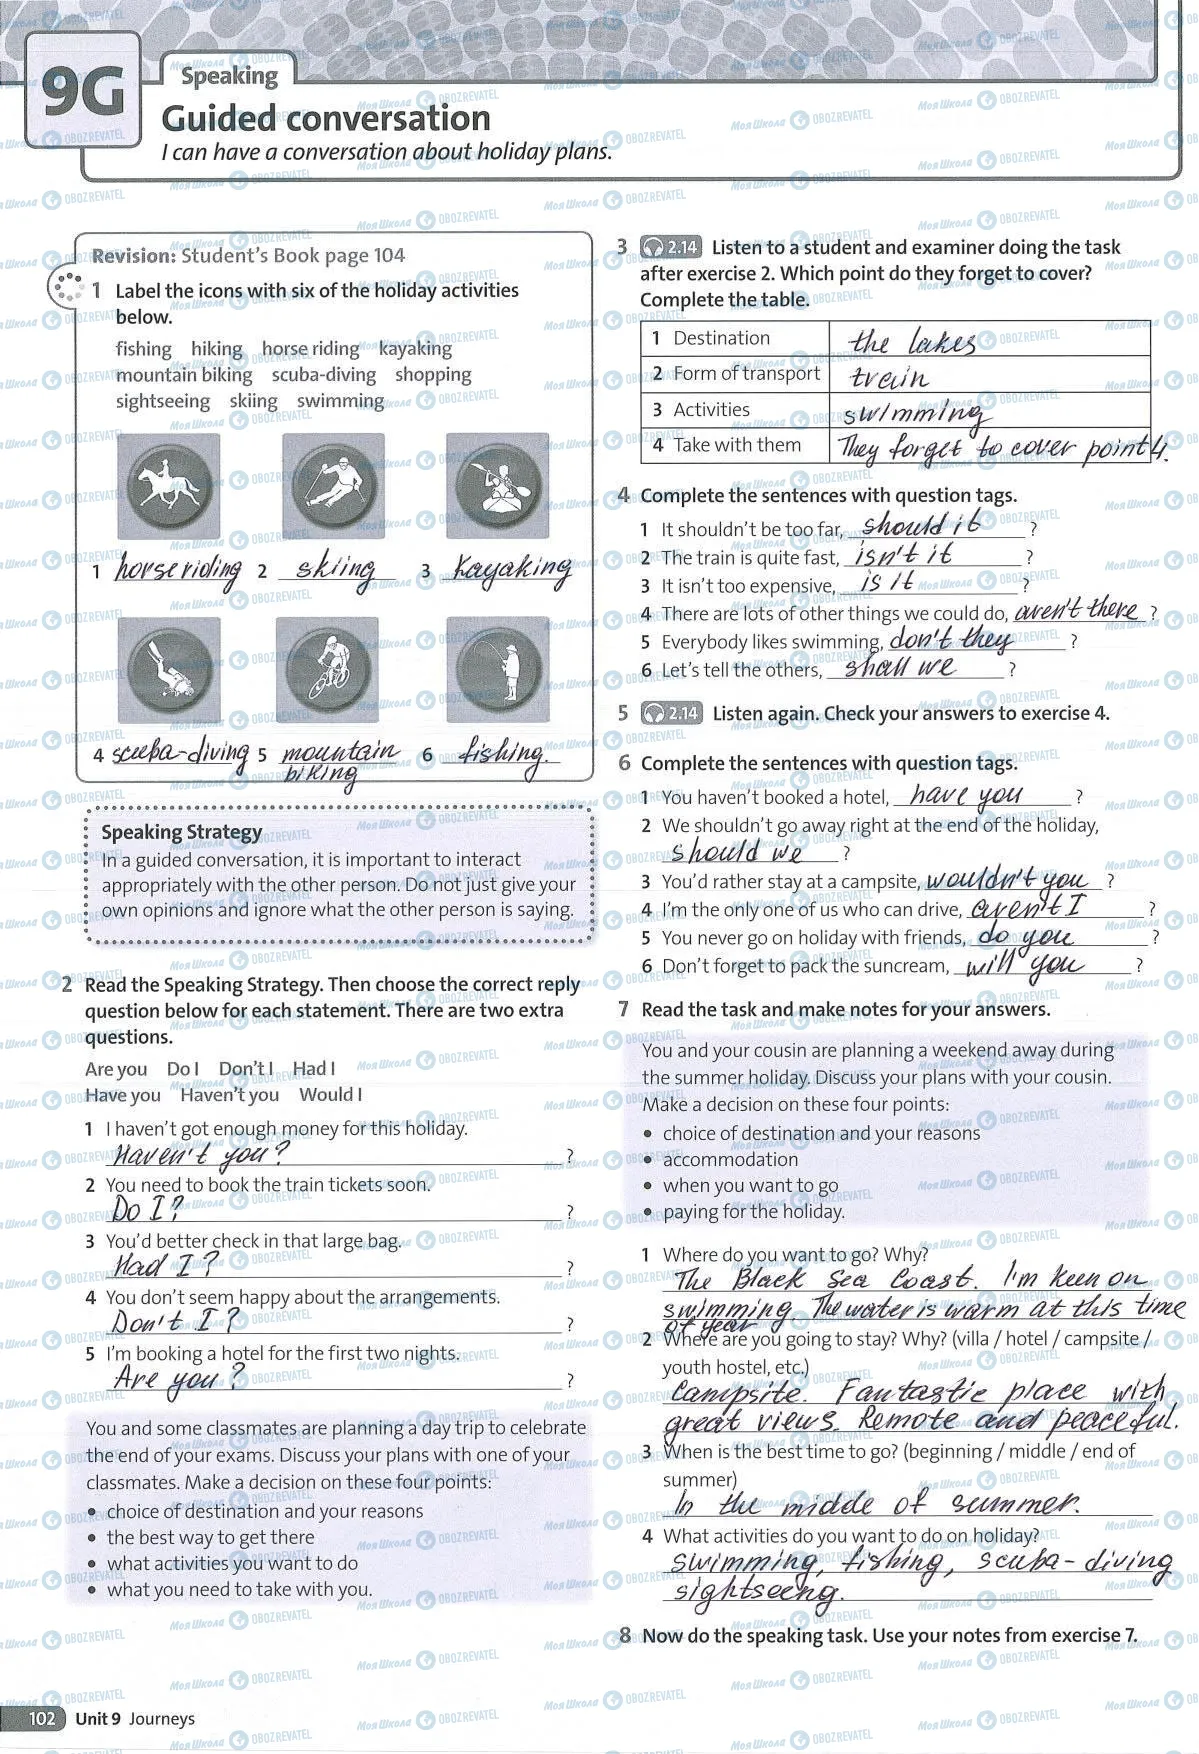 9G
Speaking
Guided conversation
I can have a conversation about holiday plans.
Revision: Student's Book page 104
1 Label the icons with six of the holiday activities
below.
fishing hiking horse riding kayaking
mountain biking scuba-diving shopping
sightseeing skiing swimming
1 horse riding 2 skiing 3 kayaking
4 scuba-diving 5 mountain biking 6 fishing.
Speaking Strategy
In a guided conversation, it is important to interact
appropriately with the other person. Do not just give your
own opinions and ignore what the other person is saying.
2 Read the Speaking Strategy. Then choose the correct reply
question below for each statement. There are two extra
questions.
Are you Do I Don't I Had I
Have you Haven't you Would I
1 I haven't got enough money for this holiday.
Haven't you? ?
2 You need to book the train tickets soon.
Do I? ?
3 You'd better check in that large bag.
Had I? ?
4 You don't seem happy about the arrangements.
Don't I? ?
5 I'm booking a hotel for the first two nights.
Are you? ?
You and some classmates are planning a day trip to celebrate
the end of your exams. Discuss your plans with one of your
classmates. Make a decision on these four points:
• choice of destination and your reasons
• the best way to get there
• what activities you want to do
• what you need to take with you.
3 2.14 Listen to a student and examiner doing the task
after exercise 2. Which point do they forget to cover?
Complete the table.
1 Destination the lakes
2 Form of transport train
3 Activities swimming
4 Take with them They forget to cover point 4.
4 Complete the sentences with question tags.
1 It shouldn't be too far, should it ?
2 The train is quite fast, isn't it ?
3 It isn't too expensive, is it ?
4 There are lots of other things we could do, aren't there ?
5 Everybody likes swimming, don't they ?
6 Let's tell the others, shall we ?
5 2.14 Listen again. Check your answers to exercise 4.
6 Complete the sentences with question tags.
1 You haven't booked a hotel, have you ?
2 We shouldn't go away right at the end of the holiday,
should we ?
3 You'd rather stay at a campsite, wouldn't you ?
4 I'm the only one of us who can drive, aren't I ?
5 You never go on holiday with friends, do you ?
6 Don't forget to pack the suncream, will you ?
7 Read the task and make notes for your answers.
You and your cousin are planning a weekend away during
the summer holiday. Discuss your plans with your cousin.
Make a decision on these four points:
• choice of destination and your reasons
• accommodation
• when you want to go
• paying for the holiday.
1 Where do you want to go? Why?
The Black Sea Coast. I'm keen on
swimming The water is warm at this time
of year
2 Where are you going to stay? Why? (villa / hotel / campsite /
youth hostel, etc.)
Campsite. Fantastic place with
great views. Remote and peaceful.
3 When is the best time to go? (beginning / middle / end of
summer)
In the middle of summer.
4 What activities do you want to do on holiday?
Swimming, fishing, scuba-diving
sightseeng.
8 Now do the speaking task. Use your notes from exercise 7.
102 Unit 9 Journeys
Моя Школа OBOZREVATEL